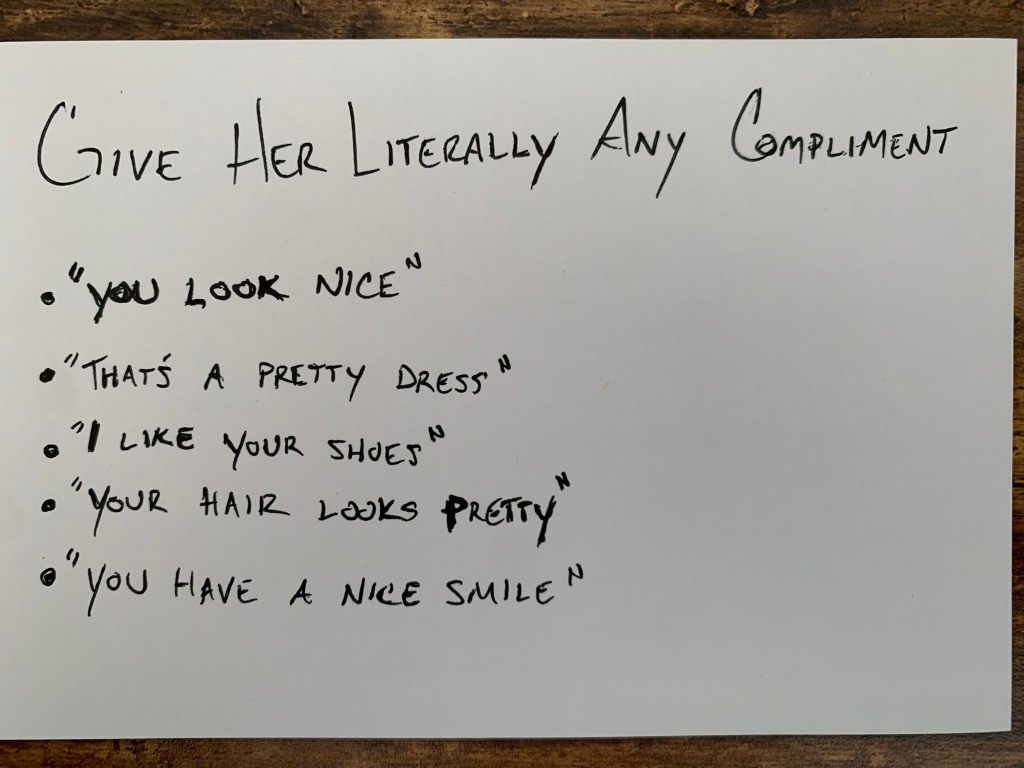 GIVE HER LITERALLY ANY COMPLIMENT
• "YOU LOOK NICE"
• "THAT'S A PRETTY DRESS"
• "I LIKE YOUR SHOES"
• "YOUR HAIR LOOKS PRETTY"
• "YOU HAVE A NICE SMILE"